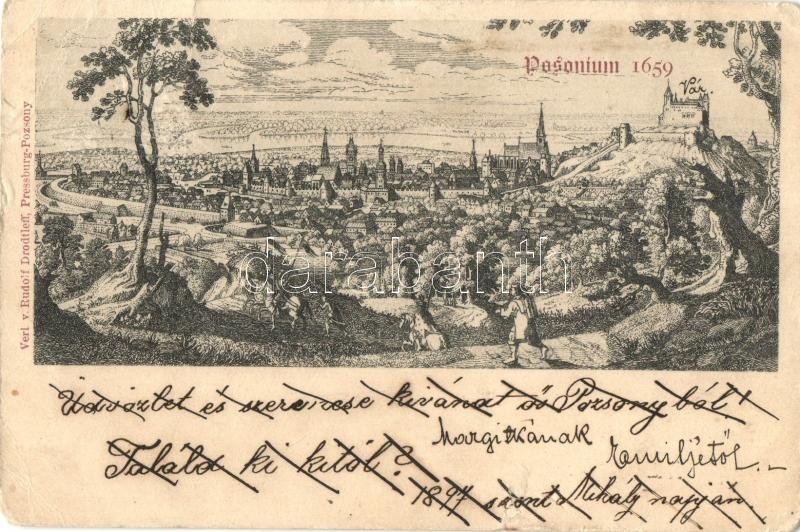 Posonium 1659
Vár.
Verl v. Rudolf Drodtleff, Pressburg-Pozsony
darabanth
Üdvözlet és szerencse kivánat ős Pozsonyból!
Margitkának
Találd ki kitöl? Emiljétöl.
1897 szent Mihály napján.